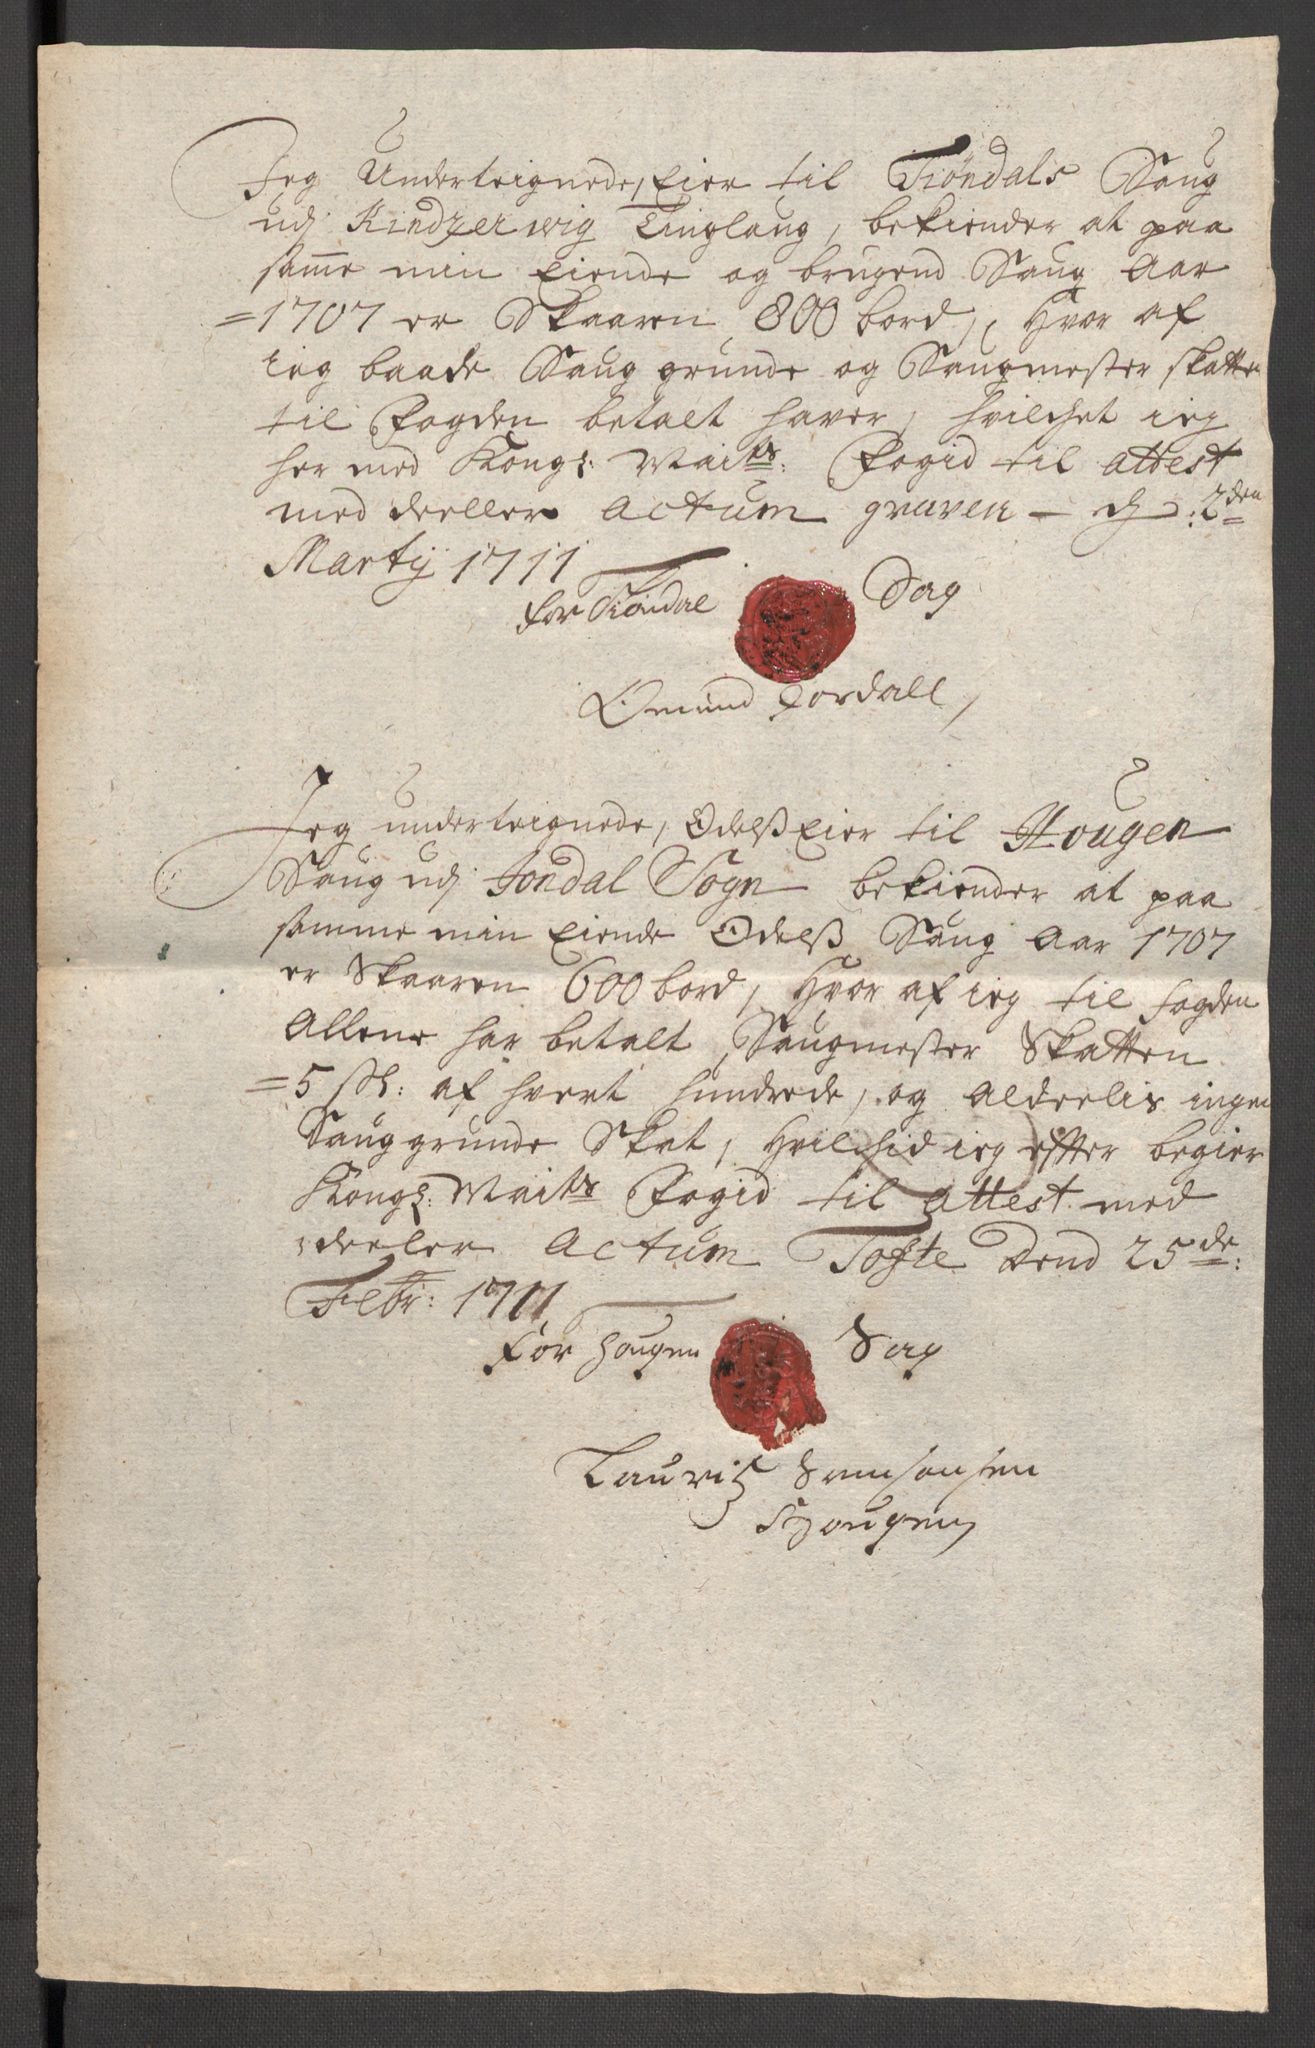 Jeg Underteignede, Eier til Tiöndals Saug
udj Kindzerwig Tinglaug, bekiender at paa
samme min Eiende og brugend Saug Aar
=1707 er Skaaren 800 bord, Hvor af
ieg baade Saug grunde og Saugmester skatten
til Fogden betalt haver, hvilchet ieg
her med Kongl: Maits: Fogid til attest
med deeller Actum graven – d: 2den
Martij 1711
for Tiöndal Sag
Omund Jordall
Jeg underteignede, Odelß Eier til Hougen
Saug udj Jondal Sogn bekiender at paa
samme min Eiende Odelß Saug Aar 1707
er Skaaren 600 bord, Hvor af ieg til fogden
Allene har betalt, Saugmester Skatten
=5 sh: af hvert hundrede, og Aldeelis ingen
Saug grunde Skat, Hvilchid ieg effter begier
Kongl: Maits Fogid til attest med
deeler Actum Tofte Dend 25de:
Febr: 1711
For Hougen Sag
Lauriß Svensonsen
Hougen